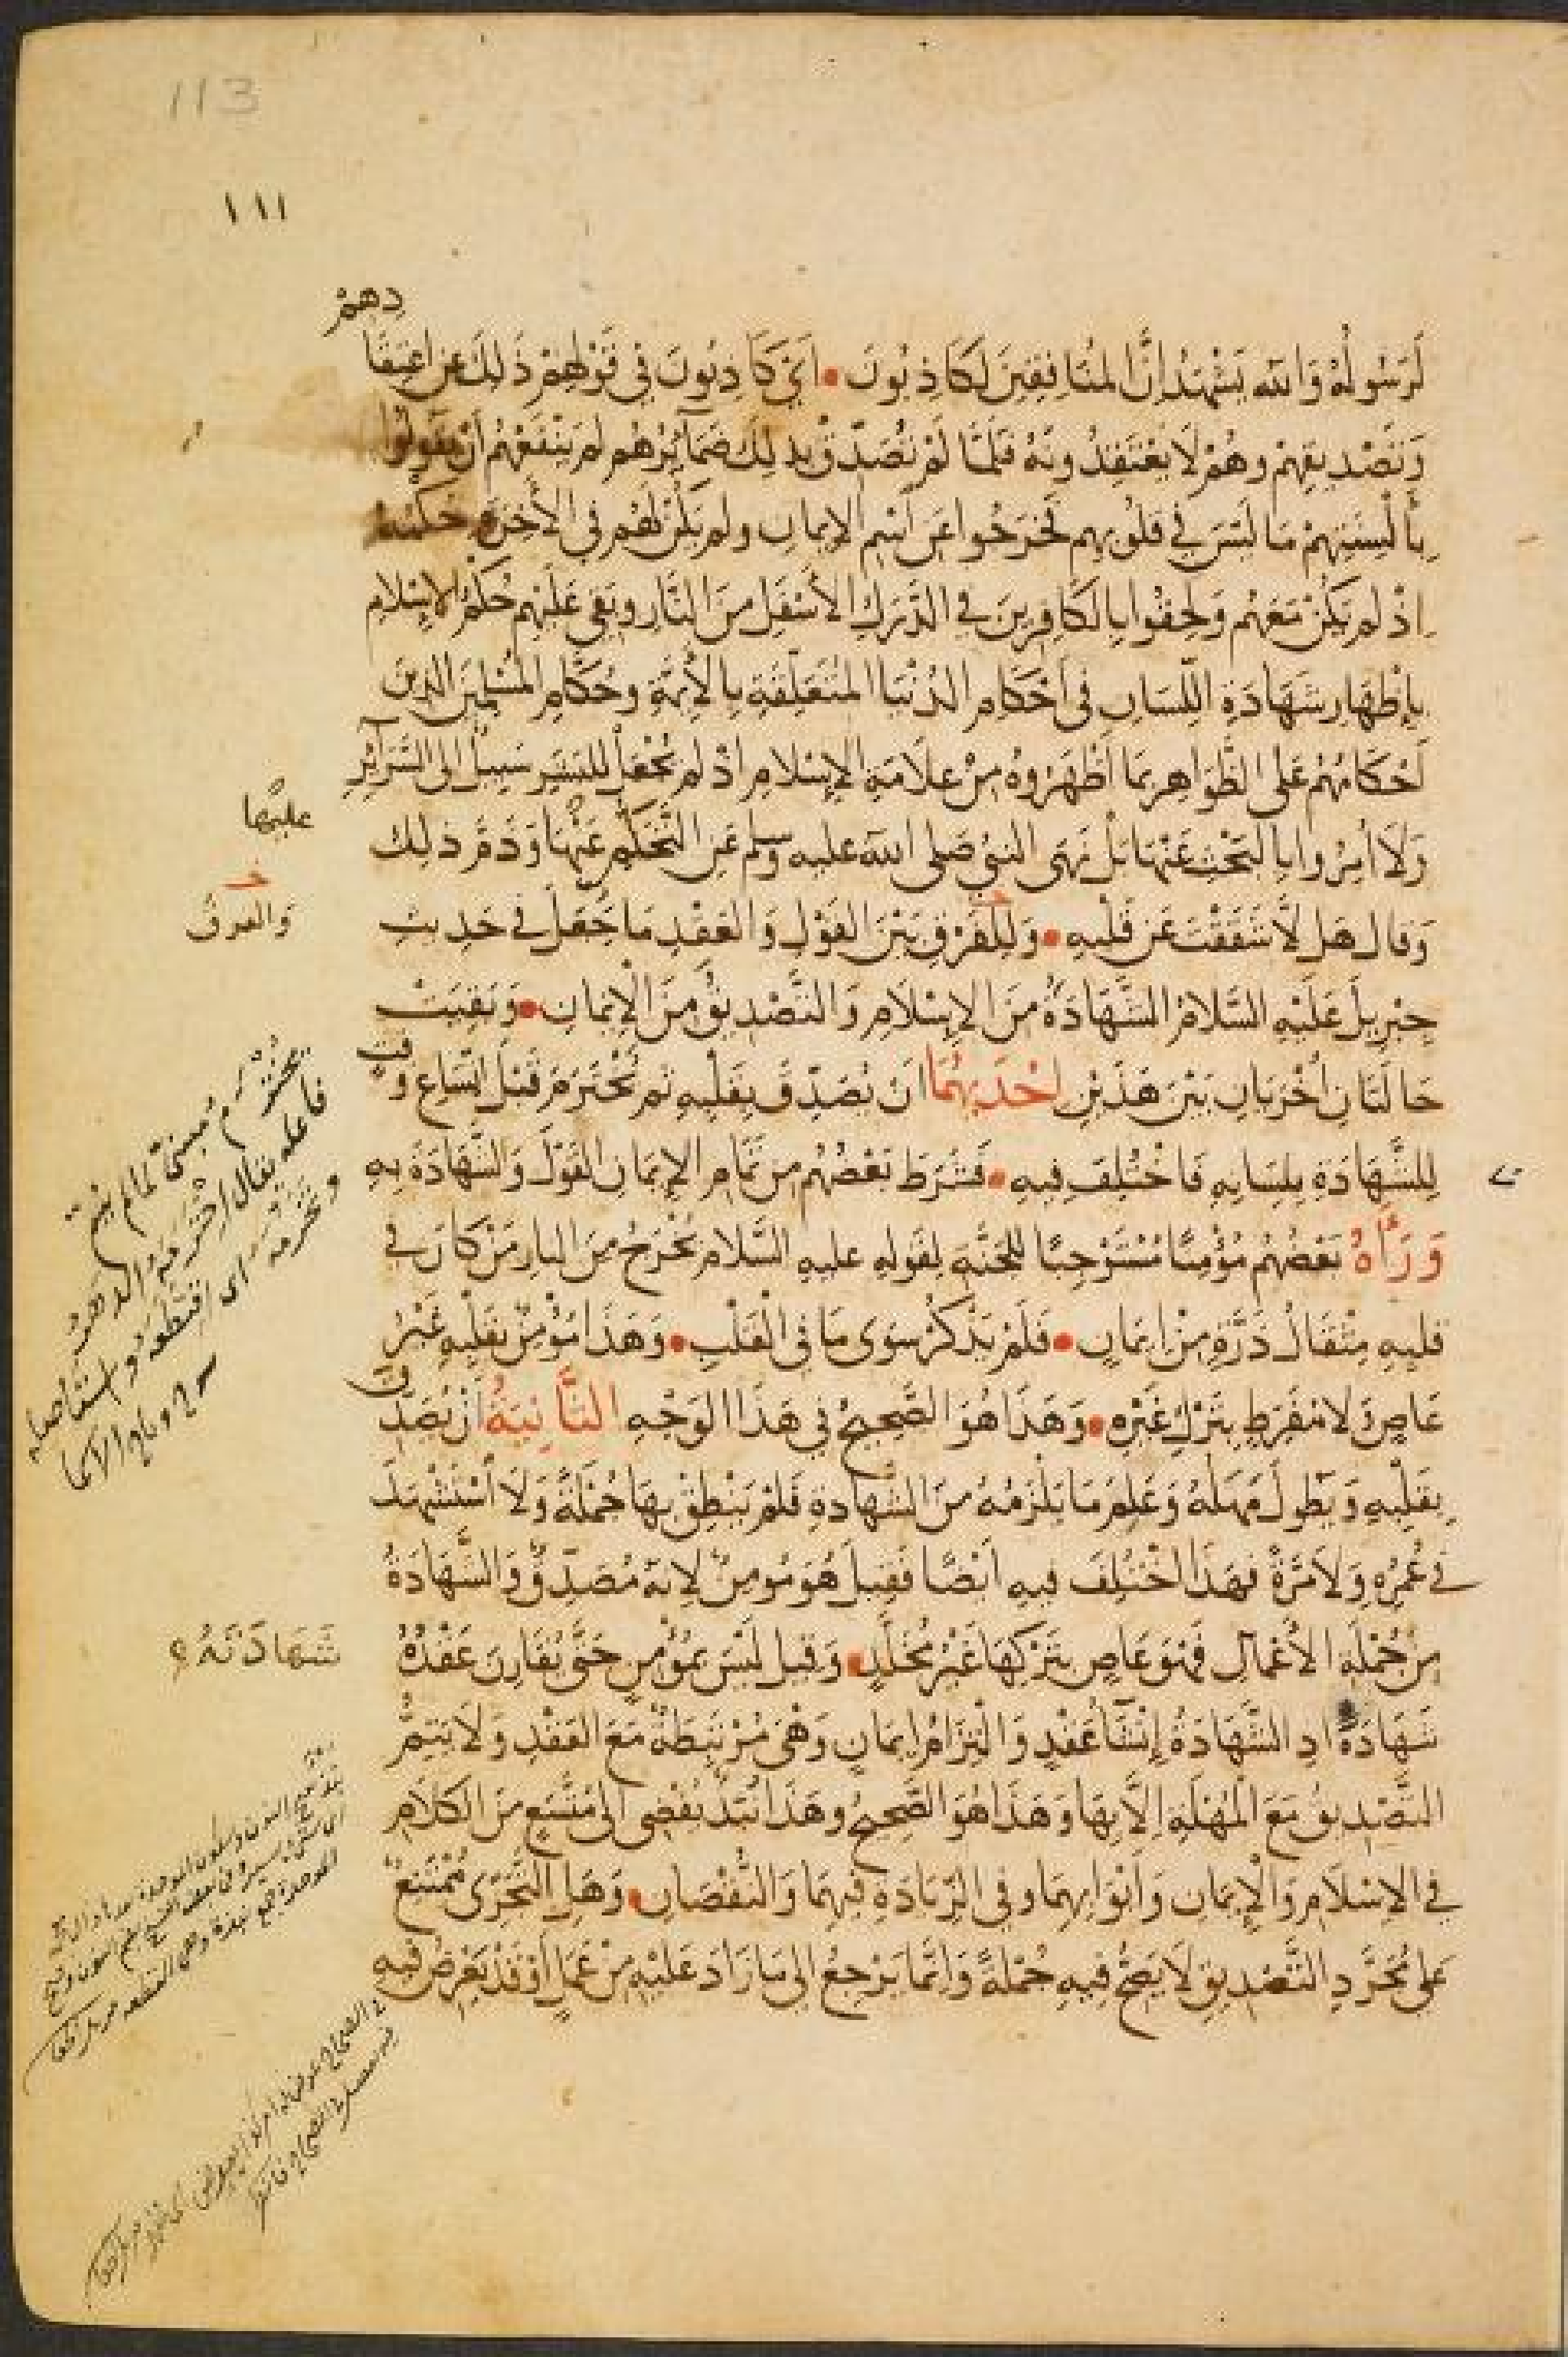 113
١١١
دهم
لَرَسُولُهُ وَالله يَشْهَدُ إِنَّ المُنَافِقِينَ لَكَاذِبُونَ • أَيْ كَاذِبُونَ فِي قَوْلِهِمْ ذَلِكَ عَنِ اعْتِقَا
وَتَصْدِيقِهِمْ وَهُمْ لَا يَعْتَقِدُونَهُ فَلَمَّا لَمْ تُصَدِّقْ بِذَلِكَ ضَمَآئِرُهُم لَمْ يَنْفَعْهُمْ أَنْ يَقُولُوا
بِأَلْسِنَتِهِمْ مَا لَيْسَ فِي قُلُوبِهِم فَخَرَجُوا عَنِ اسْمِ الإِيمَانِ وَلَم يَكُنْ لَهُم فِي الأَخِرَةِ حُكْمُهُ
إِذْ لَم يَكُنْ مَعَهُم وَلَحِقُوا بِالكَافِرِينَ فِي الدَّرَكِ الأَسْفَلِ مِنَ النَّارِ وَبَقِيَ عَلَيْهِم حُكْمُ الإِسْلَامِ
بِإِظْهَارِ شَهَادَةِ اللِّسَانِ فِي أَحْكَامِ الدُّنْيَا المُتَعَلِّقَةِ بِالأَئِمَّةِ وَحُكَّامِ المُسْلِمِينَ الذِينَ
أَحْكَامُهُمْ عَلَى الظَّوَاهِرِ بِمَا أَظْهَرُوهُ مِنْ عَلَامَةِ الإِسْلَامِ إِذْ لَم يُجْعَلْ لِلْبَشَرِ سَبِيلٌ إِلَى السَّرَآئِرِ
وَلَا أُمِرُوا بِالبَحْثِ عَنْهَا بَلْ نَهَى النَّبِيُّ صَلى الله عليه وسلم عَنِ التَّحَكُّمِ عَنْهَا وَذَمَّ ذَلِكَ
عليها
وَقَالَ هَل لَّا شَقَقْتَ عَن قَلْبِهِ • وَلِلفَرْقِ بَيْنَ القَوْلِ وَالعَقْدِ مَا جُعِلَ فِي حَدِيثِ
والفرق
جِبْرِيلَ عَلَيْهِ السَّلَامُ الشَّهَادَةُ مِنَ الإِسْلَامِ وَالتَّصْدِيقُ مِنَ الْإِيمَانِ • وَبَقِيَتْ
حَالَتَانِ أُخْرَيَانِ بَيْنَ هَذَيْنِ إِحْدَيهُمَا أَن يُصَدِّقَ بِقَلْبِهِ ثم يُخْتَرَمَ قَبْلَ اتِّسَاعِ وَقْتٍ
لِلشَّهَادَةِ بِلِسَانِهِ فَاخْتُلِفَ فِيهِ • فَشَرَطَ بَعْضُهُم مِن تَمَامِ الإِيمَانِ القَوْلَ وَالشَّهَادَةَ بِهِ
وَرَأَاهُ بَعْضُهُم مُؤْمِنًا مُسْتَوْجِبًا لِلجَنَّةِ لِقَولِهِ عليهِ السَّلام يَخْرُجُ مِنَ النارِ مَنْ كَانَ فِي
قَلبِهِ مِثْقَالُ ذَرَّةٍ مِنْ إِيمَانٍ • فَلَمْ يَذْكُرْ سِوَى مَا فِي الْقَلْبِ • وَهَذَا مُؤْمِنٌ بِقَلْبِهِ غَيْرُ
عَاصٍ وَلَا مُفَرِّطٍ بِتَرْكِ غَيْرِهِ • وَهَذَا هُوَ الصَّحِيحُ فِي هَذَا الوَجْهِ الثَّانِيَةُ أَنْ يُصَدِّق
بِقَلْبِهِ وَيُطَوِّلَ مَهَلَهُ وَعَلِمَ مَا يَلْزَمُهُ مِنَ الشَّهَادَةِ فَلَمْ يَنْطِقْ بِهَا جُمْلَةً وَلَا اسْتَشْهَدَ
فِي عُمُرِهِ وَلَا مَرَّةً فهَذَا اخْتُلِفَ فِيهِ أَيْضًا فَقِيلَ هُوَ مُومِنٌ لِأَنه مُصَدِّقٌ وَالشَّهَادَةُ
مِنْ جُمْلَةِ الأَعْمَالِ فَهُوَ عَاصٍ بِتَرْكِهَا غَيْرُ مُخَلَّدٍ • وَقِيلَ لَيْسَ بِمُؤْمِنٍ حَتَّى يُقَارِنَ عَقْدُهُ
شَهَادَتَهُ
شَهَادَةً إِذِ الشَّهَادَةُ إِنْشَآءُ عَقْدٍ وَالْتِزَامُ إِيمَانٍ وَهْيَ مُرْتَبِطَةٌ مَعَ العَقْدِ وَلَا يَتِمُّ
التَّصْدِيقُ مَعَ الْمُهْلَةِ إِلَّا بِهَا وَهَذَا هُوَ الصَّحِيحُ وَهَذَا نَبْذٌ يُفْضِي إِلَى مُتَّسَعٍ مِنَ الكَلَامِ
فِي الإِسْلَامِ وَالْإِيمَانِ وَأَبْوَابِهِمَا وَفِي الزِّيَادَةِ فِيهِمَا وَالنُّقْصَانِ • وَهَلِ التَّجَزِّي مُمْتَنِعٌ
عَلى مُجَرَّدِ التَّصْدِيقِ لَا يَصِحُّ فِيهِ جُمْلَةً وَإِنَّمَا يَرْجِعُ إِلَى مَا زَادَ عَلَيْهِ مِنْ عَمَلٍ أَوْ قَدْ يَعْرِضُ فِيهِ